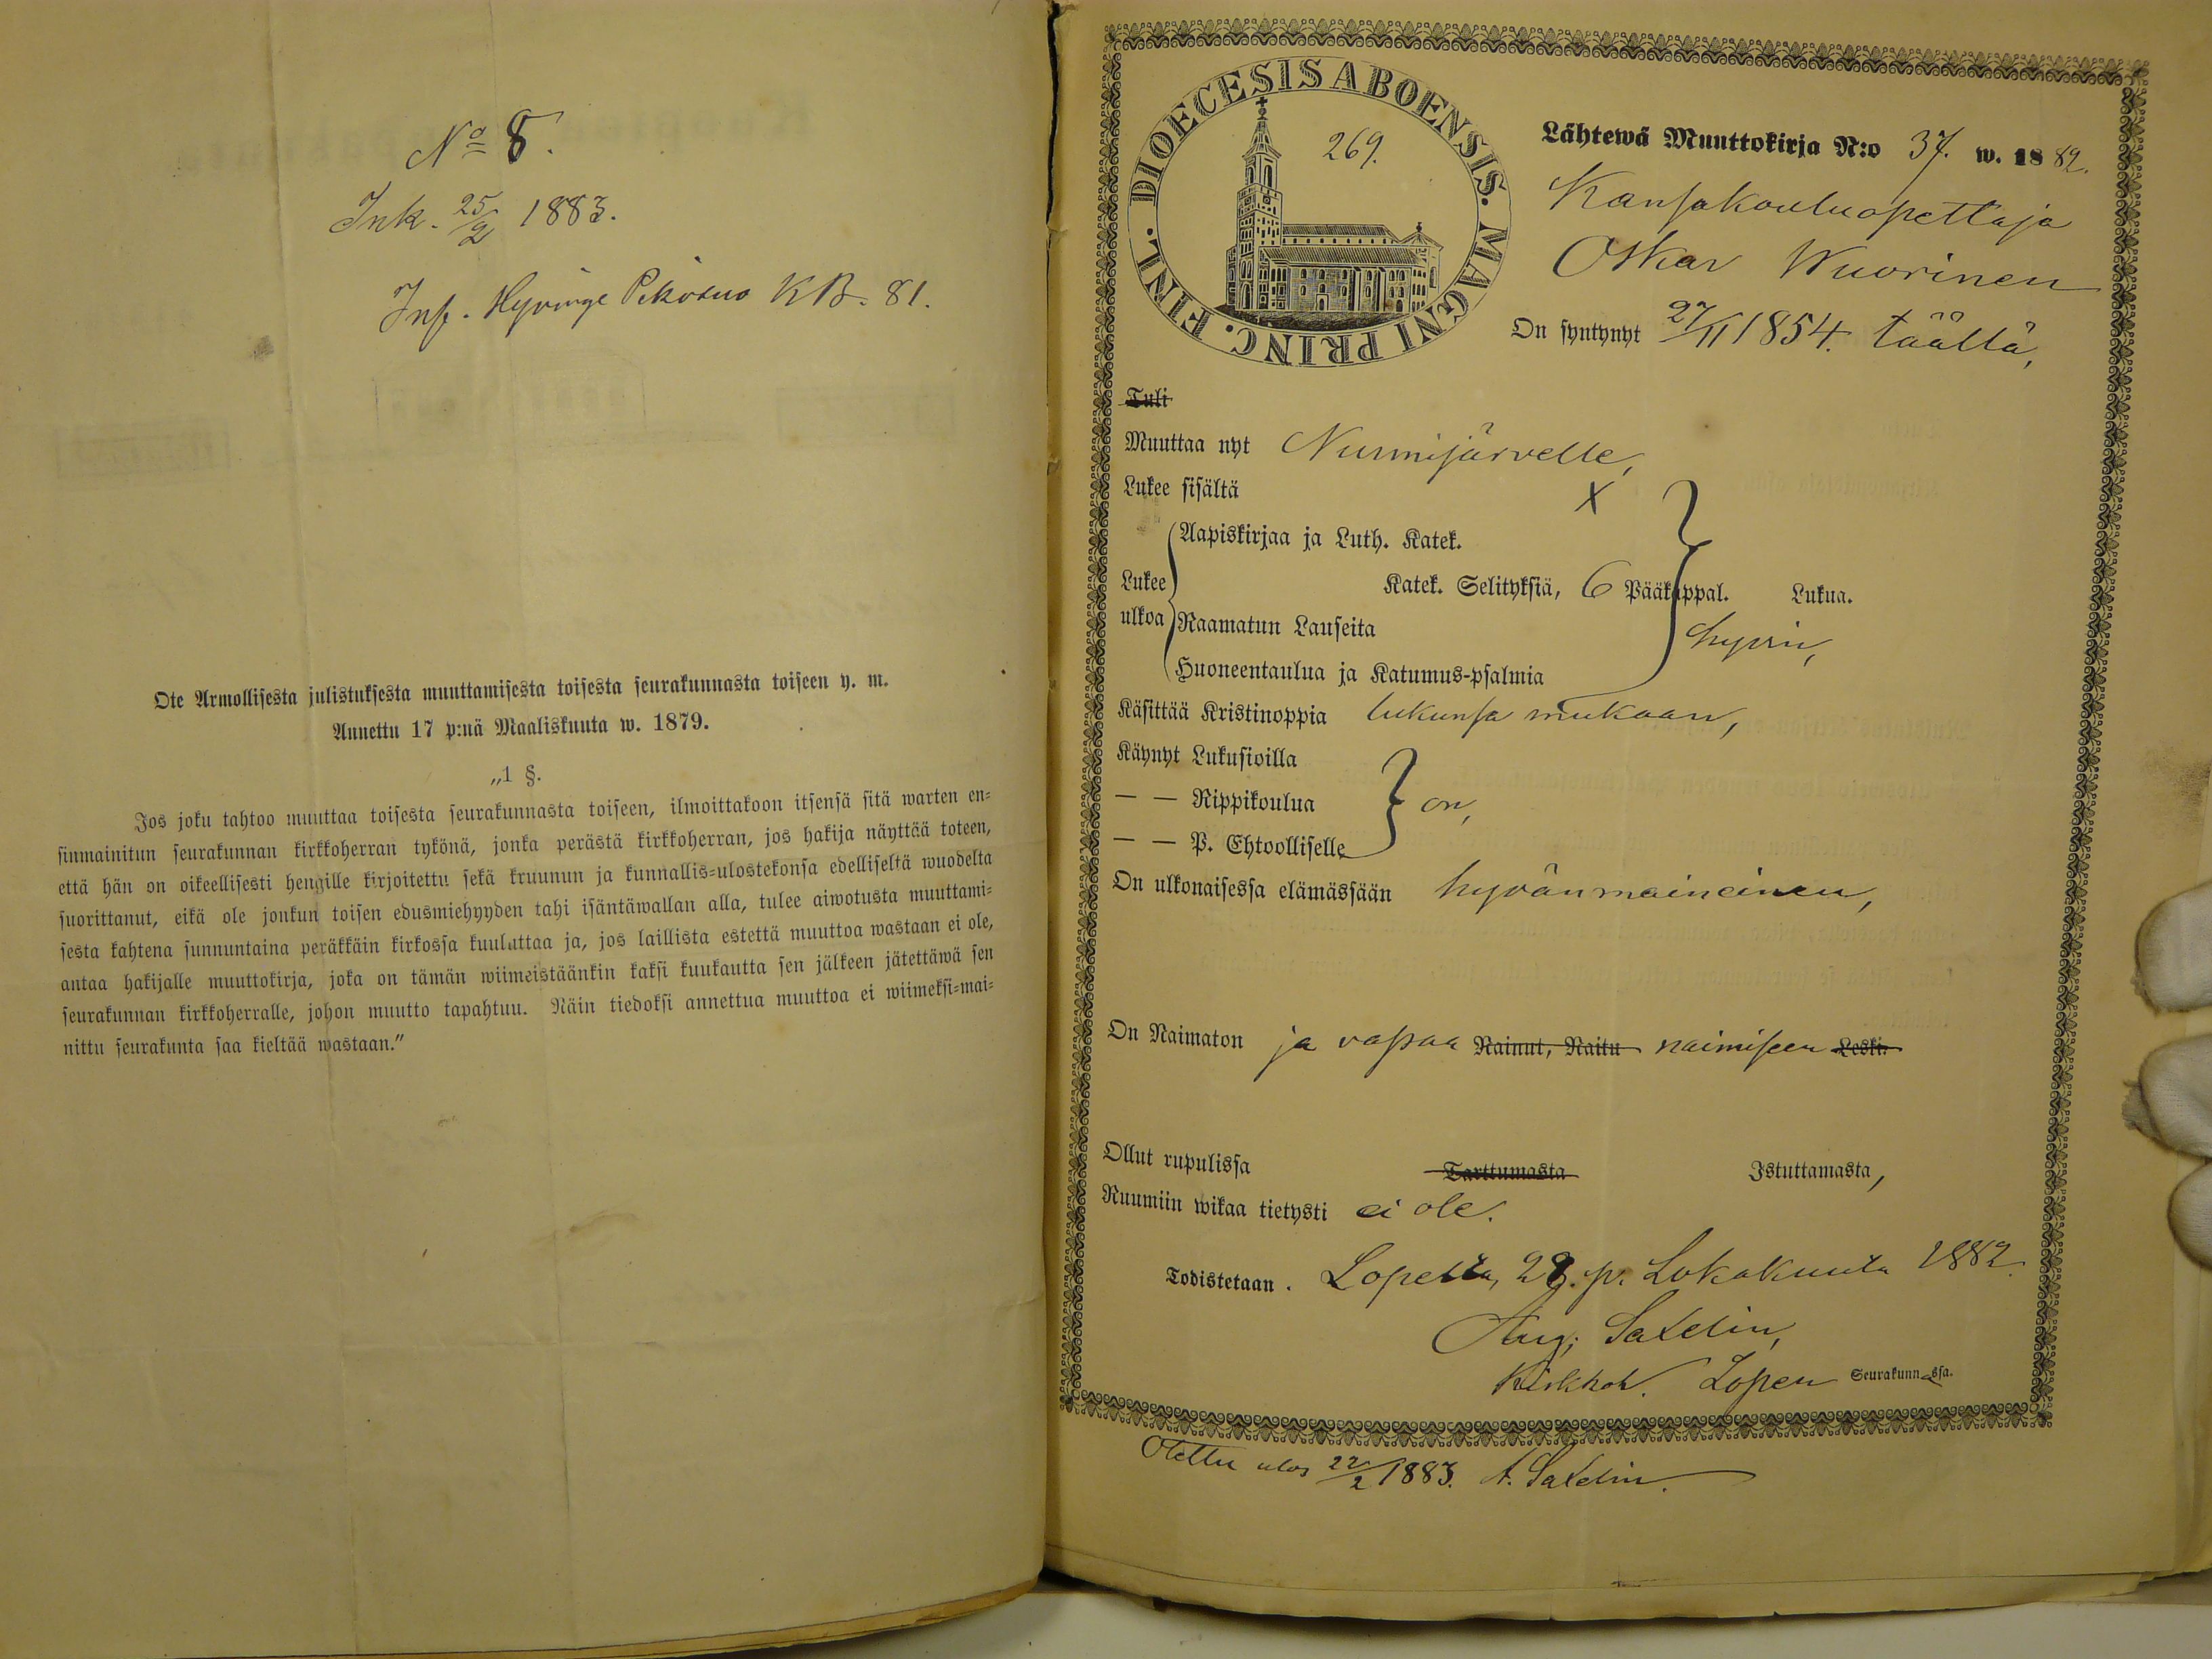 No 8.
Ink. 25/2 1883.
Inf. Hyvinge KB. 81.
Ote Armollisesta julistuksesta muuttamisesta toisesta seurakunnasta toiseen y. m.
Annettu 17 p:nä Maaliskuuta w. 1879.
„1 §.
Jos joku tahtoo muuttaa toisesta seurakunnasta toiseen, ilmoittakoon itsensä sitä warten en=
sinmainitun seurakunnan kirkkoherran tykönä, jonka perästä kirkkoherran, jos hakija näyttää toteen,
että hän on oikeellisesti hengille kirjoitettu sekä kruunun ja kunnallis=ulostekonsa edelliseltä wuodelta
suorittanut, eikä ole jonkun toisen edusmiehyyden tahi isäntäwallan alla, tulee aiwotusta muuttami=
sesta kahtena sunnuntaina peräkkäin kirkossa kuuluttaa ja, jos laillista estettä muuttoa wastaan ei ole,
antaa hakijalle muuttokirja, joka on tämän wiimeistäänkin kaksi kuukautta sen jälkeen jätettäwä sen
seurakunnan kirkkoherralle, johon muutto tapahtuu. Näin tiedoksi annettua muuttoa ei wiimeksi=mai=
nittu seurakunta saa kieltää wastaan.”
DIOECESIS ABOENSIS. MAGNI PRINC. FINL.
269.
Lähtewä Muuttokirja N:o 37. w. 1882.
Kansakouluopettaja
Oskar Wuorinen
On syntynyt 27/11 1854. täällä,
Tuli
Muuttaa nyt Nurmijärvelle,
Lukee sisältä x
Lukee ulkoa
Aapiskirjaa ja Luth. Katek.
Katek. Selityksiä, 6 Pääkappal. Lukua.
Raamatun Lauseita hyvin,
Huoneentaulua ja Katumus-psalmia
Käsittää Kristinoppia lukunsa mukaan,
Käynyt Lukusioilla
— — Rippikoulua on,
— — P. Ehtoolliselle
On ulkonaisessa elämässään hyvänmaineinen,
On Naimaton ja vapaa Nainut, Naitu naimiseen Leski
Ollut rupulissa Tarttumasta Istuttamasta,
Ruumiin wikaa tietysti ei ole.
Todistetaan. Lopella, p. Lokakuuta 1882.
Aug. Saxelin,
Kirkhok. Lopen Seurakunnassa.
Otettu ulos 22/2 1883. A. Saxelin.